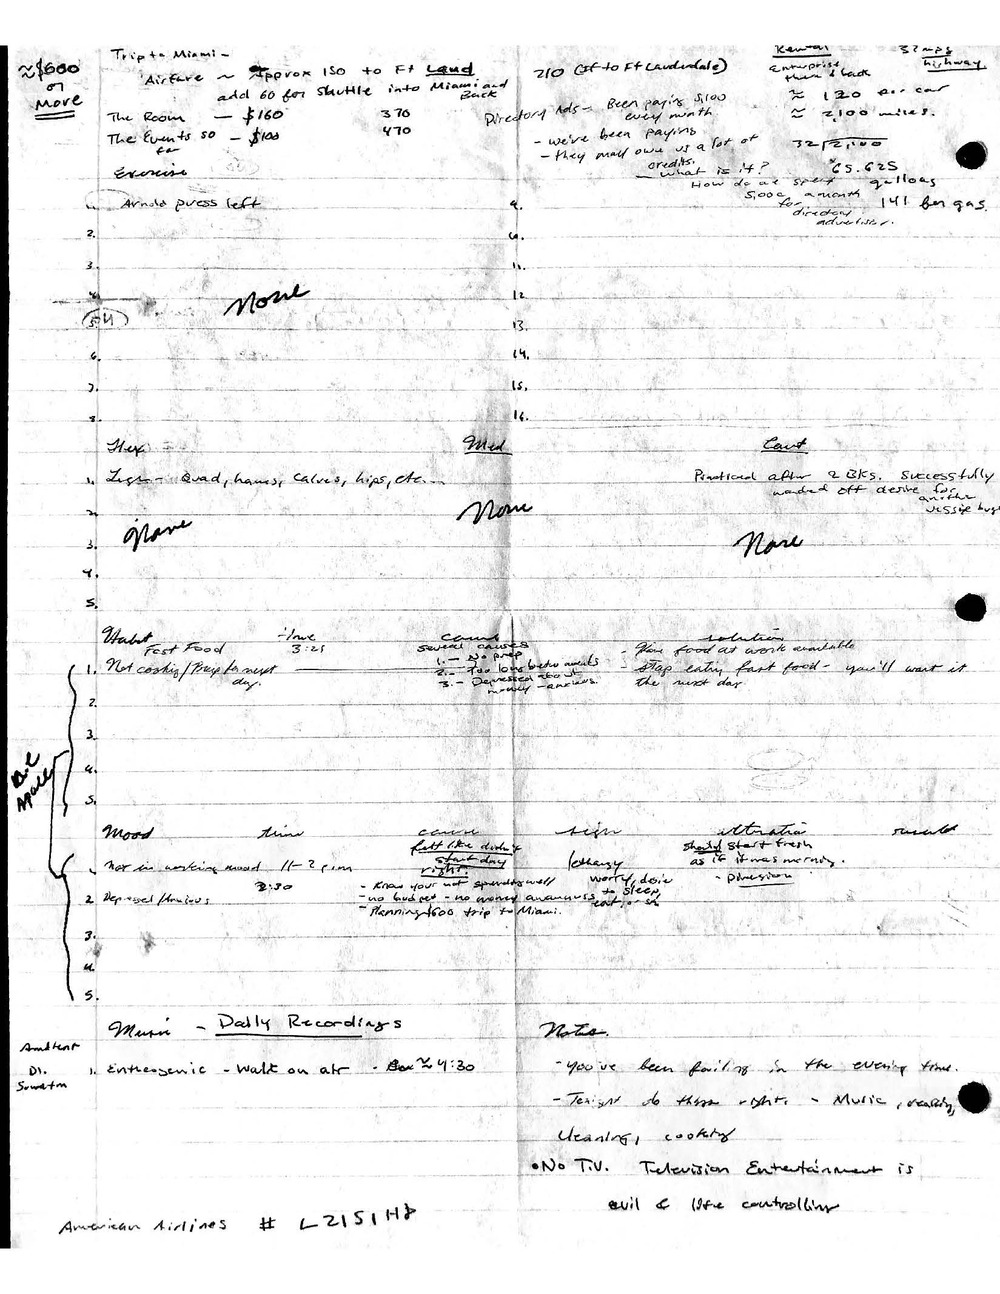 ≈$600
or
More
Trip to Miami -
Airfare ~ Approx 150 to Ft Laud
add 60 for shuttle into Miami and
Back
The Room — $160 370
The Events so — $100 470
far
210 ( to Ft Lauderdale)
Directory Ads - Been paying 5,100
every month
- we've been paying
- they owe us a lot of
credits.
- what is it?
How do we spend
5,000 a month
for
directory
advertiser.
Rental 32 mpg
highway
Enterprise
there & back
≈ 120 for car
≈ 2,100 miles.
32√2,100
65.625
gallons
141 for gas.
Exercise
1. Arnold press left 9.
2.
3. 11.
4. 12
None
5. 13.
6. 14.
7. 15.
8. 16.
Med
1. Legs - Quad, hams, calves, hips, etc...
Practiced after 2 BKs. Successfully
warded off desire for
another
None
2.
None
3.
None
4.
5.
Habit time cause solution
Fast Food 3:25 several causes
1. - No prep
2. - Too long between meals
3. - Depressed about
money - anxious.
- Have food at work available
- Stop eating fast food - you'll want it
the next day.
1. Not cooking / Prep for next
day.
2.
3.
4.
5.
Mood time cause sign alteration result
felt like didn't
start day
right.
should start fresh
as if it was morning.
- Diversion
1. Not in working mood 11-2 pm lethargy
2. Depressed/Anxious 2:30
- Know your not spending well
- no budget - no money awareness
- Planning $600 trip to Miami.
worry, desire
to sleep,
eat, or
3.
4.
5.
Music - Daily Recordings
Ambient
1. Entheogenic - Walk on air - ≈ 4:30
Notes.
- You've been failing in the evening time.
- Tonight do things right. - Music, reading,
cleaning, cooking
• No T.V. Television Entertainment is
evil & life controlling
American Airlines #